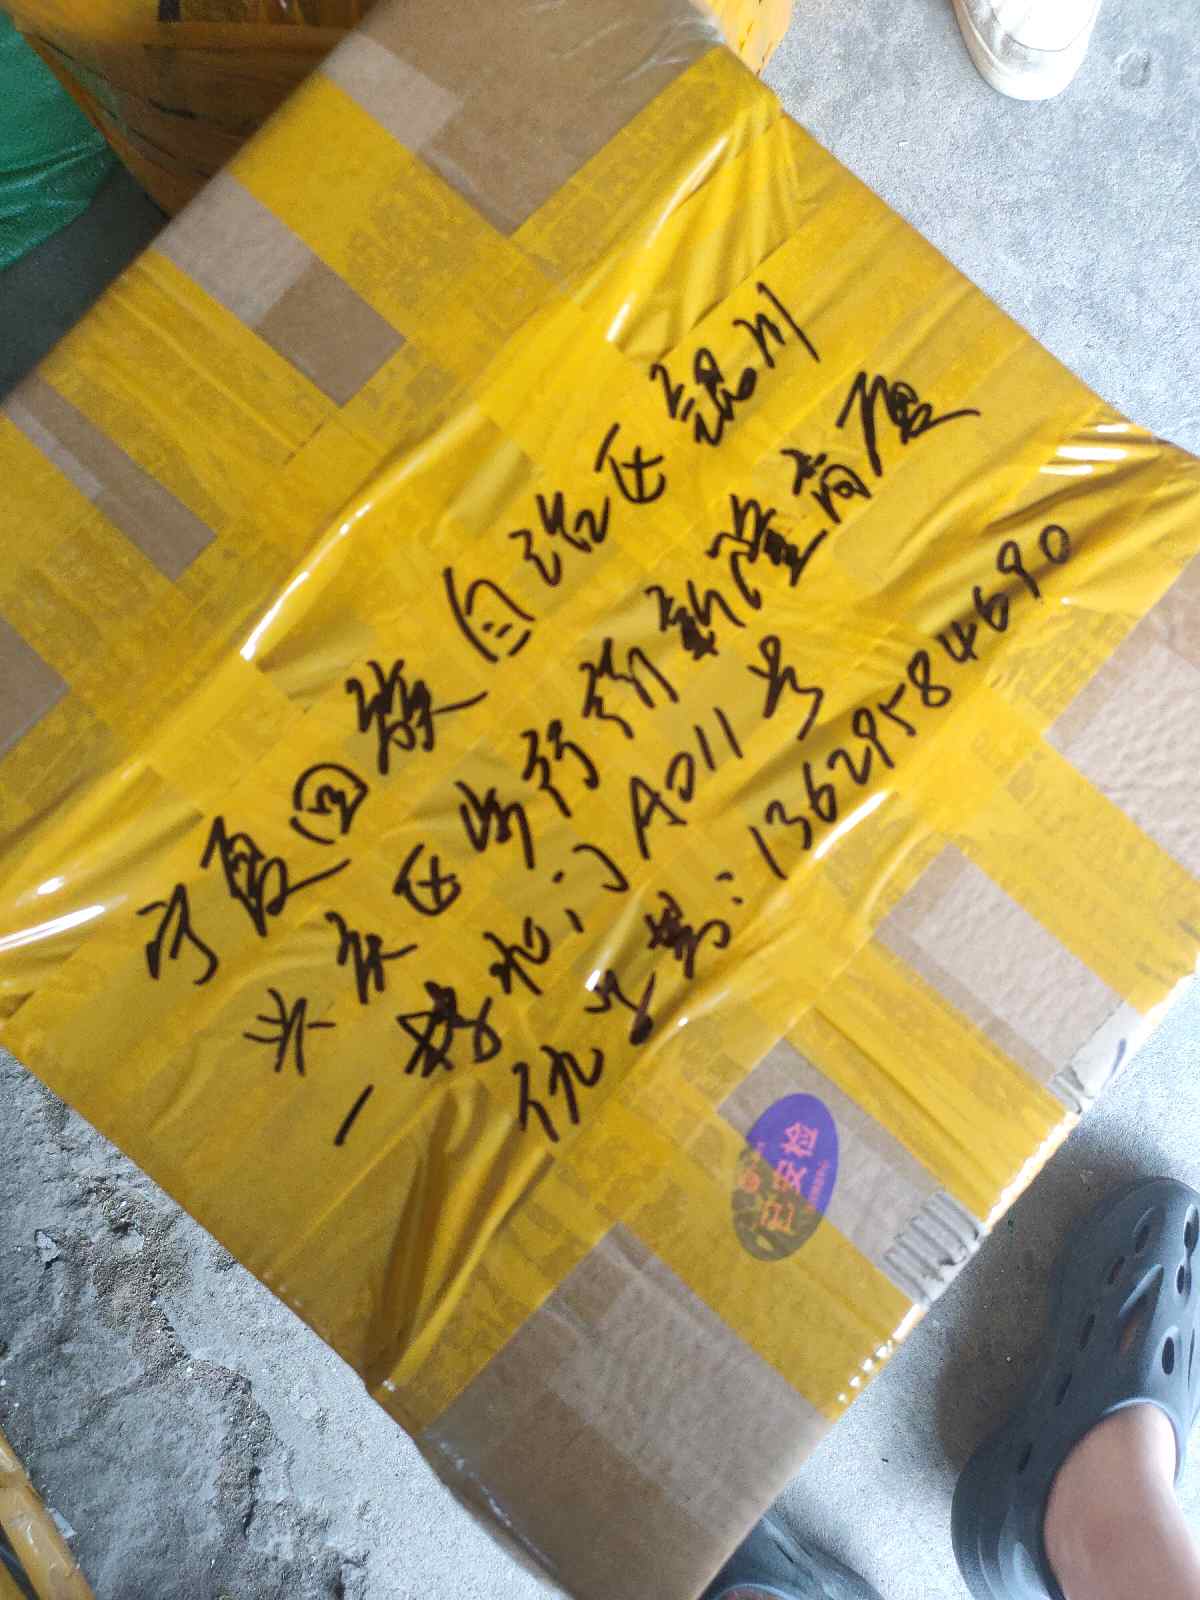 宁夏回族自治区银川
兴庆区步行街新隆商厦
一楼北门A011号
:13629584690
已安检